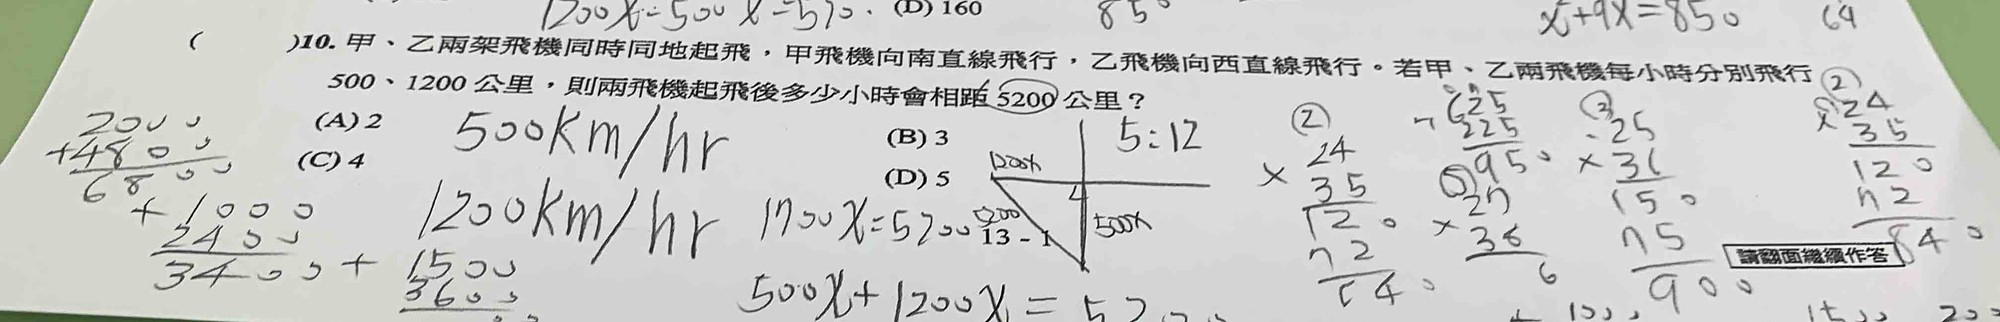 1200x-500x=570. (D) 160
850
x+9x=850
64
( )10. 甲、乙兩架飛機同時同地起飛，甲飛機向南直線飛行，乙飛機向西直線飛行。若甲、乙兩飛機每小時分別飛行
500、1200 公里，則兩飛機起飛後多少小時會相距 5200 公里？
(A) 2
(B) 3
(C) 4
(D) 5
500km/hr
1200km/hr
5:12
1200x
500x
5200
13 - 1
1700x=5200
500x+1200x=
2000
+4800
6800
+1000
2400
3400
+1500
3600
②
24
×35
120
72
840
625
225
950
③
25
×36
150
75
900
⑤
×
36
6
②
24
×35
120
72
840
請翻面繼續作答